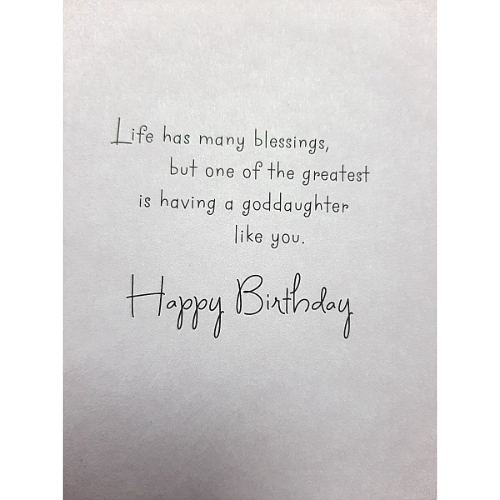 Life has many blessings,
but one of the greatest
is having a goddaughter
like you.
Happy Birthday